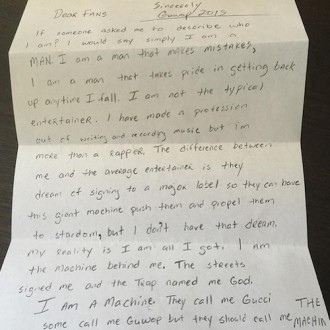 Dear Fans
Sincerely
Guwop 2015
If someone asked me to describe who
I am? I would say simply I am a
MAN. I am a man that makes mistakes,
I am a man that takes pride in getting back
up anytime I fall. I am not the typical
entertainer. I have made a profession
out of writing and recording music but Im
more than a rapper. The difference between
me and the average entertainer is they
dream of signing to a major label so they can have
this giant machine push them and propel them
to stardom, but I don't have that dream.
My reality is I am all I got. I am
the Machine behind me. The streets
signed me and the Trap named me God.
I Am A Machine. They call me Gucci
some call me Guwop but they should call me THE
MACHIN